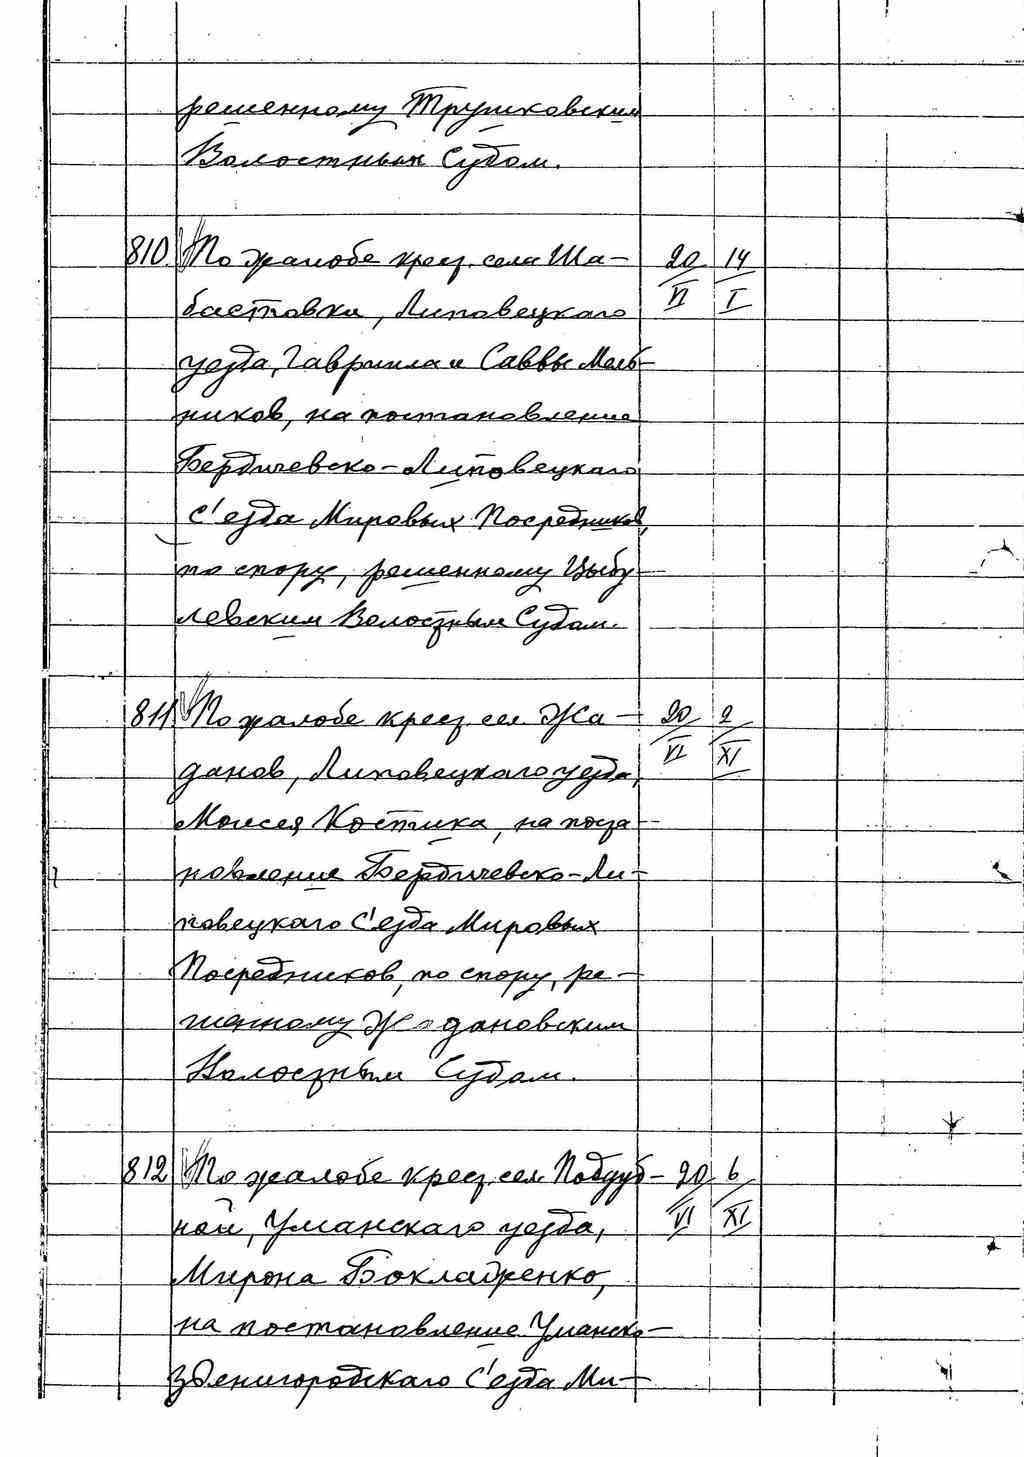 решенному Трушковским
Волостным Судом.
810. По жалобе крест. села Ша- 20/VI 14/I
бастовки, Липовецкаго
уезда, Гавриила и Саввы Мель-
ников, на постановление
Бердичевско-Липовецкаго
С'езда Мировых Посредников,
по спору, решенному Цыбу-
левским Волостным Судом.
811 По жалобе крест. сел. Жа- 20/VI 2/XI
данов, Липовецкаго уезда,
Моисея Костюка, на поста-
новление Бердичевско-Ли-
повецкаго С'езда Мировых
Посредников, по спору, ре-
шенному Ждановским
Волостным Судом.
812 По жалобе крест. сел. Поддуб- 20/VI 6/XI
ной, Уманскаго уезда,
Мирона
на постановление Уманско-
Звенигородскаго С'езда Ми-